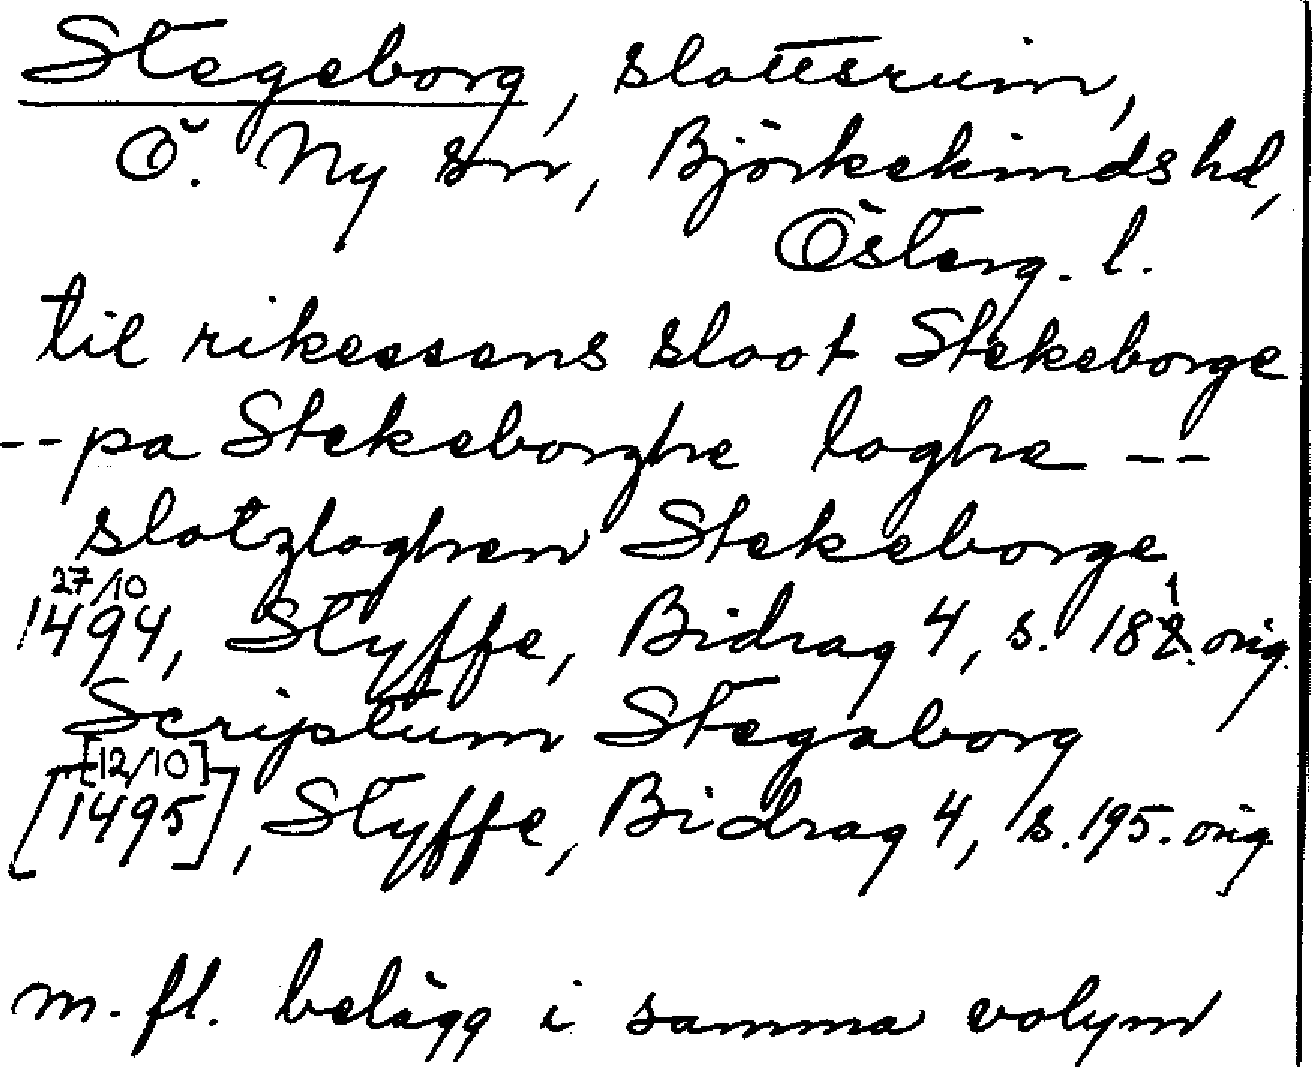 Stegeborg, slottsruin,
Ö. Ny sn, Björkekinds hd,
Österg. l.
til rikessens sloot Stekeborge
-- pa Stekeborghe loghe --
slotzloghen Stekeborge
27/10 1
1494, Styffe, Bidrag 4, s. 182. orig.
Scriptum Stegaborg
[12/10]
[1495], Styffe, Bidrag 4, s. 195. orig
m. fl. belägg i samma volym